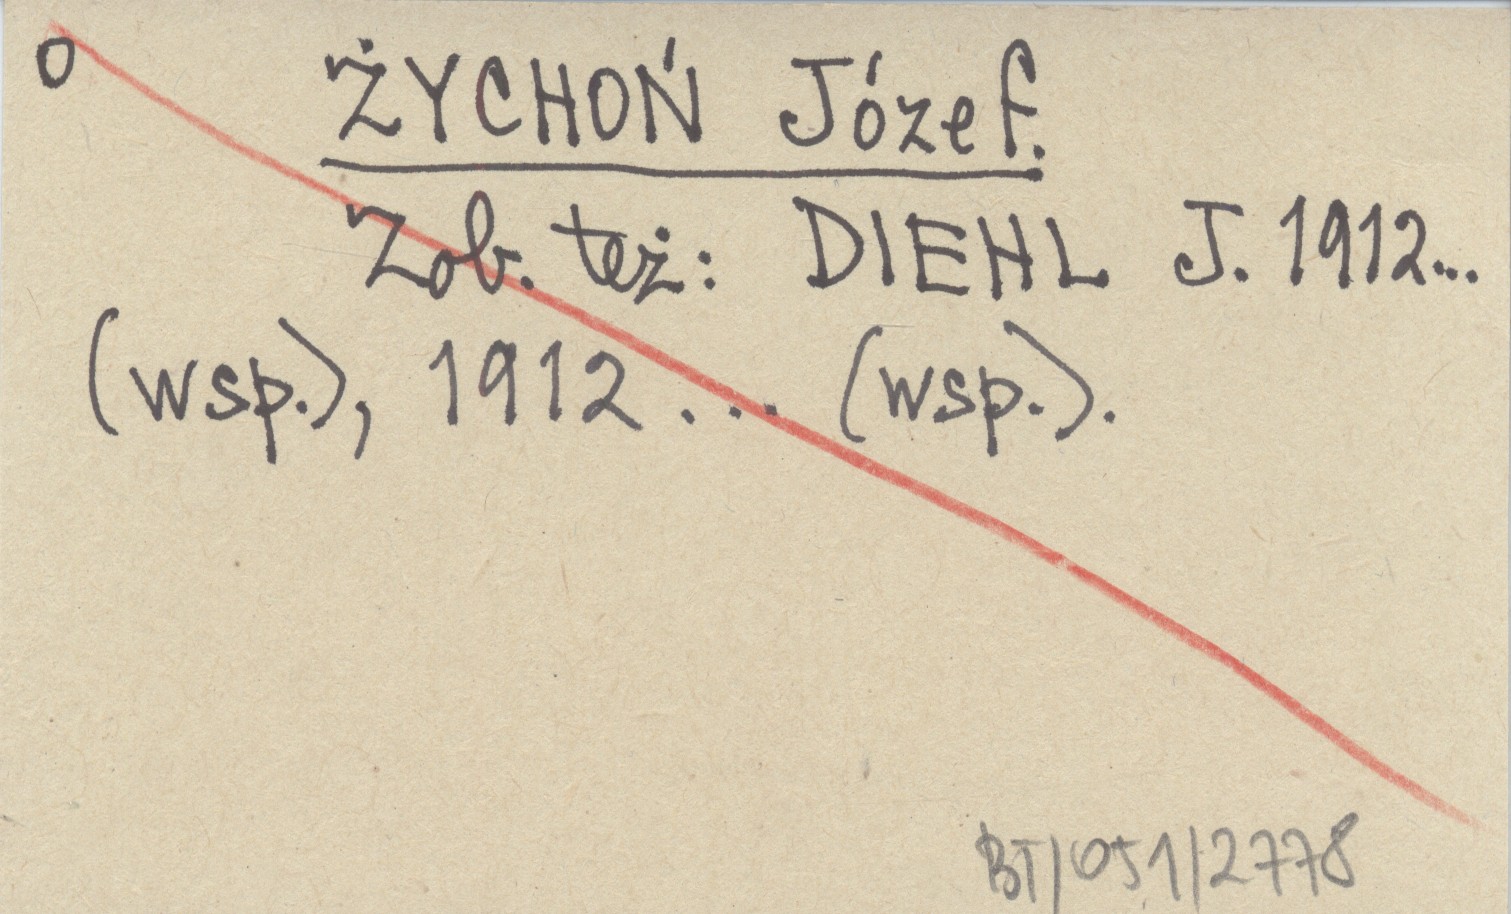 O ŻYCHOŃ Józef.
Zob. też: DIEHL J. 1912...
(wsp.), 1912... (wsp.).
BT/051/2778